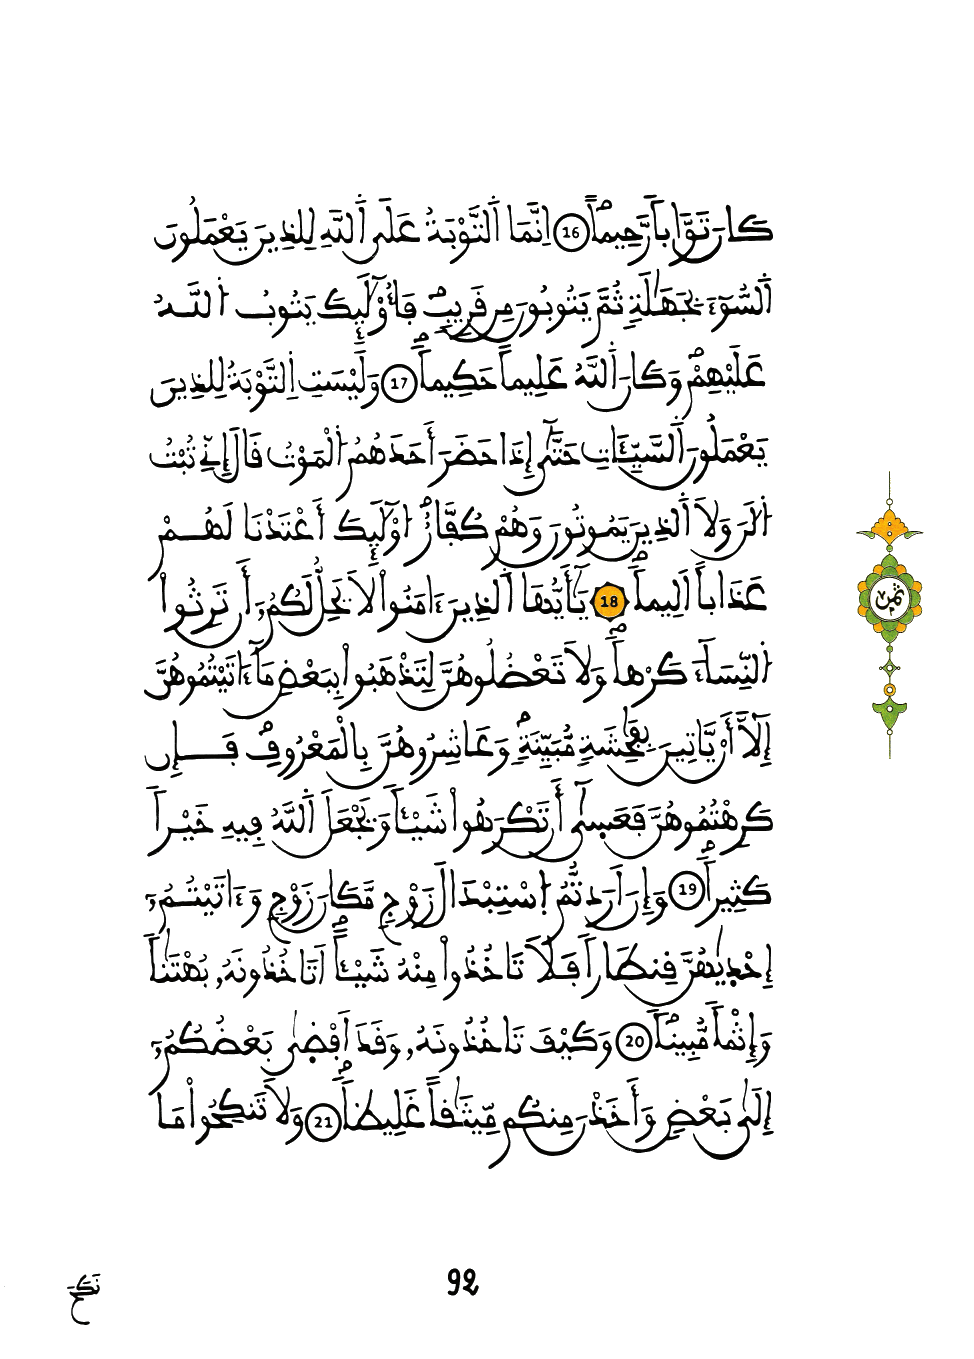 كَانَ تَوَّاباٗ رَّحِيماًۖ 16 اِنَّمَا اَ۬لتَّوْبَةُ عَلَي اَ۬للَّهِ لِلذِينَ يَعْمَلُونَ
اَ۬لسُّوٓءَ بِجَهَٰلَةٖ ثُمَّ يَتُوبُونَ مِن قَرِيبٖۖ فَأُوْلَٰٓئِكَ يَتُوبُ اُ۬للَّهُ
عَلَيْهِمْۖ وَكَانَ اَ۬للَّهُ عَلِيماً حَكِيماٗۖ 17 وَلَيْسَتِ اِ۬لتَّوْبَةُ لِلذِينَ
يَعْمَلُونَ اَ۬لسَّيِّـَٔاتِ حَتَّيٰٓ إِذَا حَضَرَ أَحَدَهُمُ اُ۬لْمَوْتُ قَالَ إِنِّے تُبْتُ
اُ۬لَٰنَ وَلَا اَ۬لذِينَ يَمُوتُونَ وَهُمْ كُفَّارٌۖ اوْلَٰٓئِكَ أَعْتَدْنَا لَهُمْ
عَذَاباً اَلِيماٗۖ 18 يَٰٓأَيُّهَا اَ۬لذِينَ ءَامَنُواْ لَا يَحِلُّ لَكُمُۥٓ أَن تَرِثُواْ
اُ۬لنِّسَآءَ كَرْهاٗۖ وَلَا تَعْضُلُوهُنَّ لِتَذْهَبُواْ بِبَعْضِ مَآ ءَاتَيْتُمُوهُنَّ
إِلَّآ أَنْ يَّاتِينَ بِفَٰحِشَةٖ مُّبَيِّنَةٖۖ وَعَاشِرُوهُنَّ بِالْمَعْرُوفِۖ فَإِن
كَرِهْتُمُوهُنَّ فَعَسَيٰٓ أَن تَكْرَهُواْ شَيْـٔاٗ وَيَجْعَلَ اَ۬للَّهُ فِيهِ خَيْراٗ
كَثِيراٗۖ 19 وَإِنْ أَرَدتُّمُ اُ۪سْتِبْدَالَ زَوْجٖ مَّكَانَ زَوْجٖ وَءَاتَيْتُمُۥٓ
إِحْد۪يٰهُنَّ قِنطَاراٗ فَلَا تَاخُذُواْ مِنْهُ شَيْـٔاًۖ اَتَاخُذُونَهُۥ بُهْتَٰناٗ
وَإِثْماٗ مُّبِيناٗۖ 20 وَكَيْفَ تَاخُذُونَهُۥ وَقَدَ اَفْضَيٰ بَعْضُكُمُۥٓ
إِلَيٰ بَعْضٖ وَأَخَذْنَ مِنكُم مِّيثَٰقاً غَلِيظاٗۖ 21 وَلَا تَنكِحُواْ مَا
ثمن
92
نكح